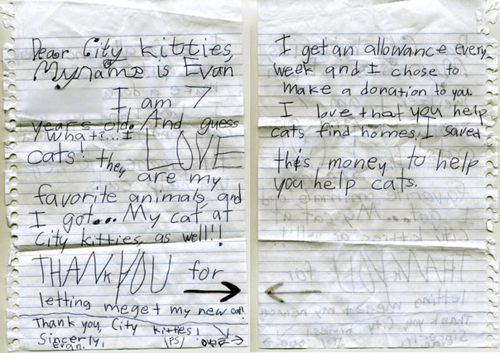 Dear City kitties,
My name is Evan
I am 7
years old. And guess
what...I
cats! they LOVE
are my
favorite animals, and
I got... My cat at
City kitties, as well!!
THANK YOU for
letting me get my new cat!
Thank you, City kitties!
Sincerly,
Evan. (PS) over→
I get an allowance every
week and I chose to
make a donation to you
I love that you help
cats find homes. I saved
this money to help
you help cats.